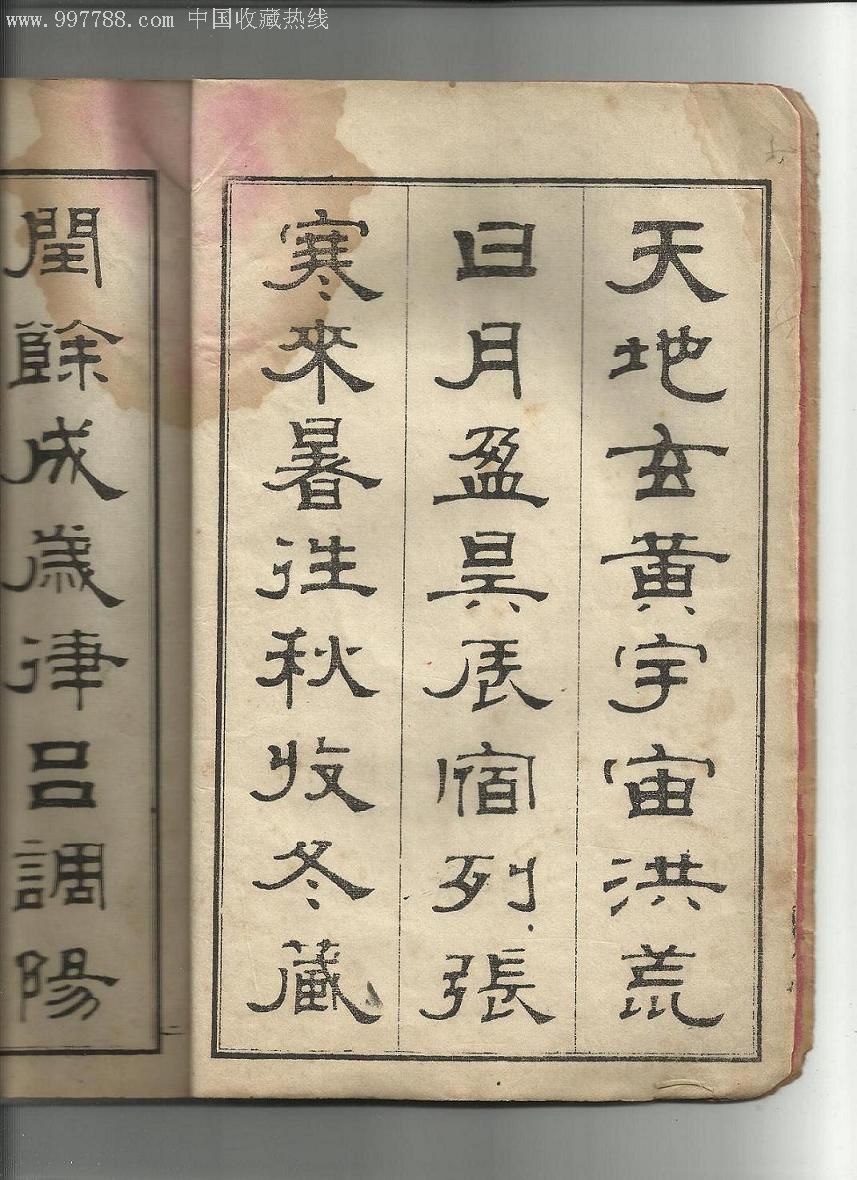 www.997788.com 中国收藏热线
天地玄黃宇宙洪荒
日月盈昃辰宿列張
寒來暑往秋收冬藏
閏餘成歲律呂調陽